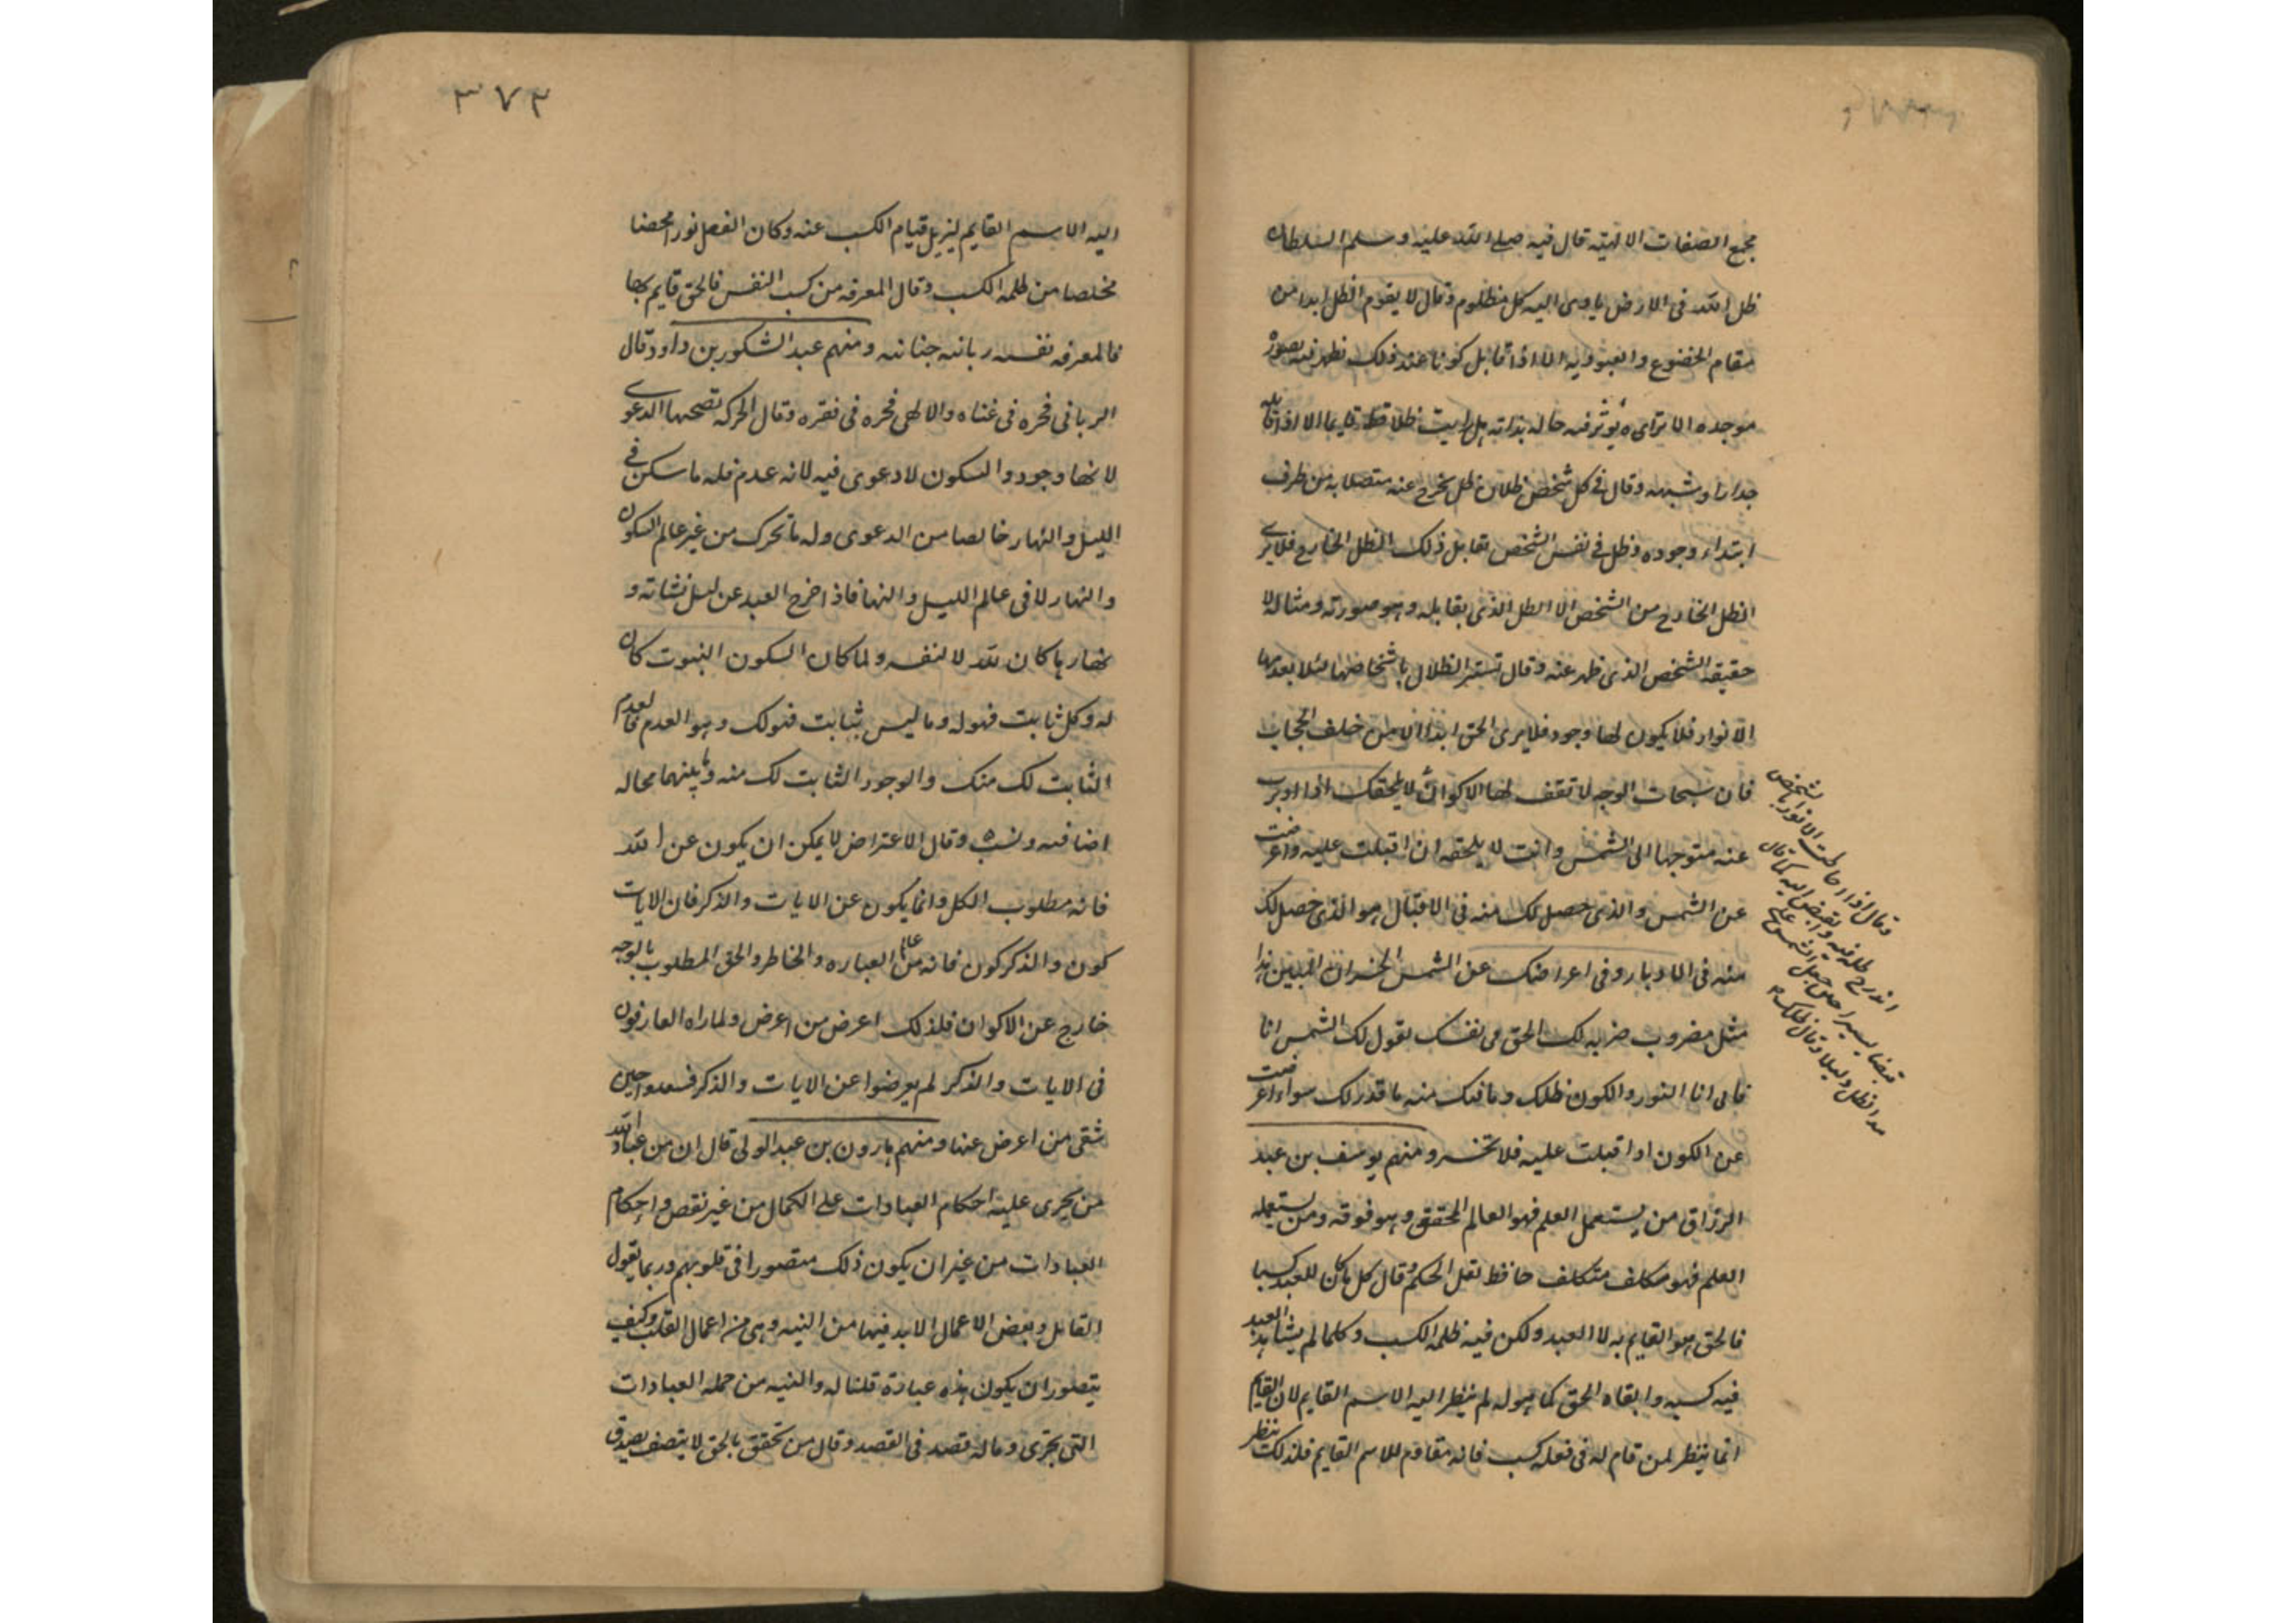 مجمع الصفات الالهية قال فيه صلى الله عليه وسلم السلطان
ظل الله فى الارض ياوى اليه كل مظلوم وقال لا يقوم الظل ابدا من
مقام الخضوع والعبودية الا اذا قابل كونا عند ذلك تظهر فيه بصورة
موجده الا تراى يوثر فيه حاله بذاته هل رايت ظلا قط قايما الا اذا قابله
جدارا وشبهه وقال فى كل شخص ظلان ظل يخرج عنه متصلا به من طرف
ابتداء وجوده وظل فى نفس الشخص تقابل ذلك الظل الخارج فلا يرى
الظل الخارج من الشخص الا الظل الذى يقابله وهو صورته ومثاله لا
حقيقه الشخص الذى ظهر عنه وقال تستتر الظلال باشخاصها لئلا يعدمها
الانوار فلا يكون لها وجود فلا يرى الحق ابدا الا من خلف الحجاب
فان سبحات الوجه لا تقف لها الاكوان لا يلحقك اذا ادبرت
عنه متوجها الى الشمس وانت لا يلحقه ان اقبلت عليه واعرضت
عن الشمس والذى حصل لك منه فى الاقبال هو الذى حصل لك
منه فى الادبار وفى اعراضك عن الشمس الخسران المبين هذا
مثل مضروب ضربه لك الحق فى نفسك يقول لك الشمس انا
فانى انا النور والكون ظلك وما فيك منه ما قدر لك سواء اعرضت
عن الكون او اقبلت عليه فلا تخسر ومنهم يوسف بن عبد
الرزاق من يستعمل العلم فهو العالم المحقق وهو فوقه ومن يستعمله
العلم فهو مكلف متكلف حافظ نقل الحكم وقال كل ما كان للعبد كسبا
فالحق هو القايم به لا العبد ولكن فيه ظلمه الكسب وكلما لم يشاهد العبد
فيه كسبه وابقاه الحق كما هو له لم ينظر اليه الاسم القايم لان القايم
انما ينظر لمن قام له فى فعله كسب فانه مقاوم للاسم القايم فلذلك ينظر
وقال اذا احاطت الانوار بالشخص
اندرج ظله فيه وانقبض اليه كما قال
قبضا يسيرا حين جعل الشمس على
الظل دليلا وقال ظلك
٣٧٢
اليه الاسم القايم ليزيل قيام الكسب عنه وكان الفعل نورا محضا
مخلصا من ظلمه الكسب وقال المعرفه من كسب النفس فالحق قايم بها
فالمعرفه نفسه ربانيه جنانيه ومنهم عبد الشكور بن داود قال
الربانى فخره فى غناه والالهى فخره فى فقره وقال الحركه تصحبها الدعوى
لانها وجود والسكون لا دعوى فيه لانه عدم فله ما سكن فى
الليل والنهار خالصا من الدعوى وله ما تحرك من غير عالم السكون
والنهار لا فى عالم الليل والنها فاذا خرج العبد عن ليل نشاته و
نهارها كان لله لا لنفسه ولما كان السكون الثبوت كان
له وكل ثابت فهو له وما ليس بثابت فهو لك وهو العدم فالعدم
الثابت لك منك والوجود الثابت لك منه وما بينهما محاله
اضافيه ونسبه وقال الاعتراض لا يمكن ان يكون عن الله
فانه مطلوب الكل وانما يكون عن الايات والذكر فان الايات
كون والذكر كون فانه من عالم العباره والخاطر والحق المطلوب بالوجه
خارج عن الاكوان فلذلك اعرض من اعرض ولما راه العارفون
فى الايات والذكر لم يعرضوا عن الايات والذكر فسعدوا حين
شقى من اعرض عنها ومنهم هارون بن عبد الولى قال ان من عباد الله
من يجرى عليه احكام العبادات على الكمال من غير نقص واحكام
العبادات من غير ان يكون ذلك متصورا فى قلوبهم وربما يقول
القائل وبعض الاعمال لا بد فيها من النيه وهى من اعمال القلب وكيف
يتصور ان يكون هذه عبادة قلنا له والنيه من جمله العبادات
التى تجرى وماله قصد فى القصد وقال من تحقق بالحق لا يتصف بصدق